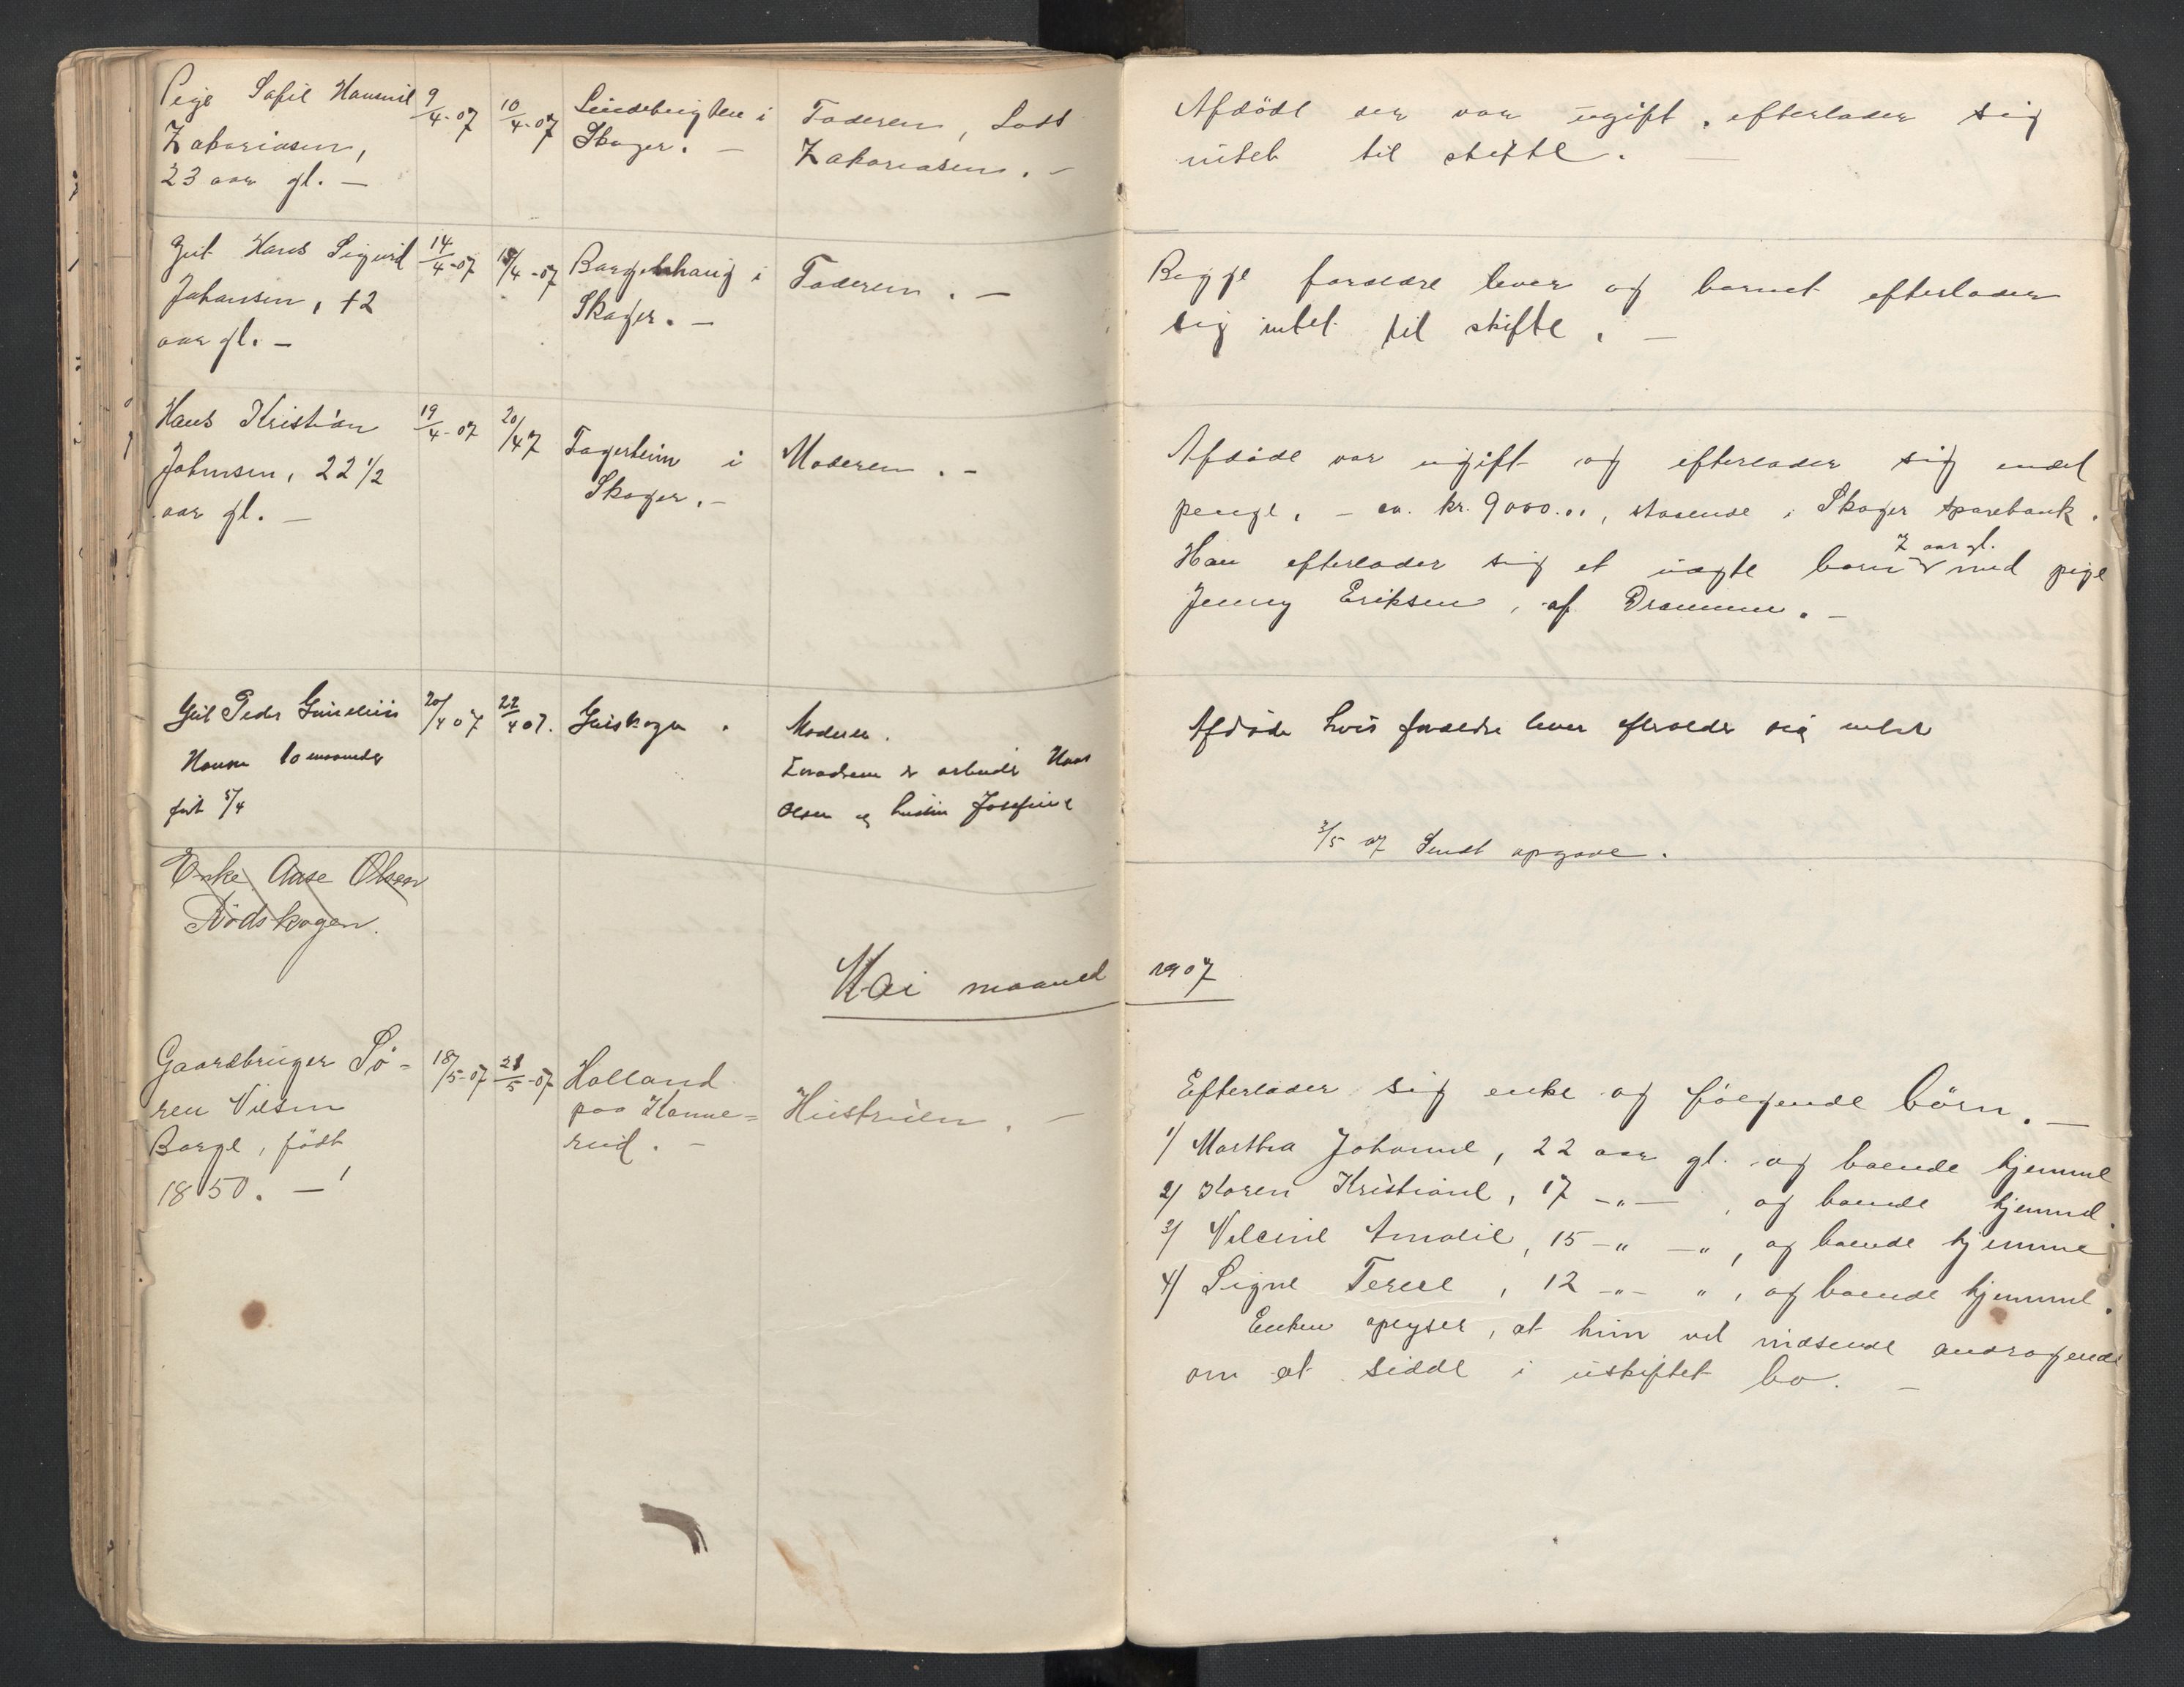 Pige Sofie Hansine
Zakariasen,
23 aar gl. —
9/4-07
10/4-07
i
Skoger. —
Faderen, Lods
Zakariasen. —
Afdöde der var ugift, efterlader sig
intet til skifte. —
Gut Hans Sigurd
Johansen, 12
aar gl. —
14/4-07
/4-07
i
Skoger. —
Faderen. —
Begge forældre lever og barnet efterlader
sig intet til skifte. —
Hans Kristian
Johnsen, 22 1/2
aar gl. —
19/4-07
20/47
Fagerheim i
Skoger. —
Moderen. —
Afdöde var ugift og efterlader sig endel
penge, – ca. kr. 9000.00, staaende i Skoger sparebank.
Han efterlader sig et uægte barn 7 aar gl. med pige
Jenny Eriksen, af Drammen. —
Gut Peder
Hansen 10 maaneder
födt 5/4
20/4 07
22/4 07.
Moderen.
Forældrene er arbeider Hans
Olsen og hustru Josefine
Afdöde hvis forældre lever efterlader sig intet
3/5 07 Sendt opgave.
Enke Aase Olsen
Rödskogen.
Mai maaned 1907
Gaardbruger Sö-
ren Nilsen
Borge, födt
1850. —
18/5-07
21/5-07
Holland
paa Konne-
rud. —
Hustruen. —
Efterlader sig enke og fölgende börn. —
1/ Martha Johanne, 22 aar gl. og boende hjemme
2/ Karen Kristiane, 17 –„— , og boende hjemme.
3/ Amalie, 15 –„ –„, og boende hjemme
4/ Signe Terese, 12 –„– „, og boende hjemme.
Enken oplyser, at hun vil indsende andragende
om at sidde i uskiftet bo. —